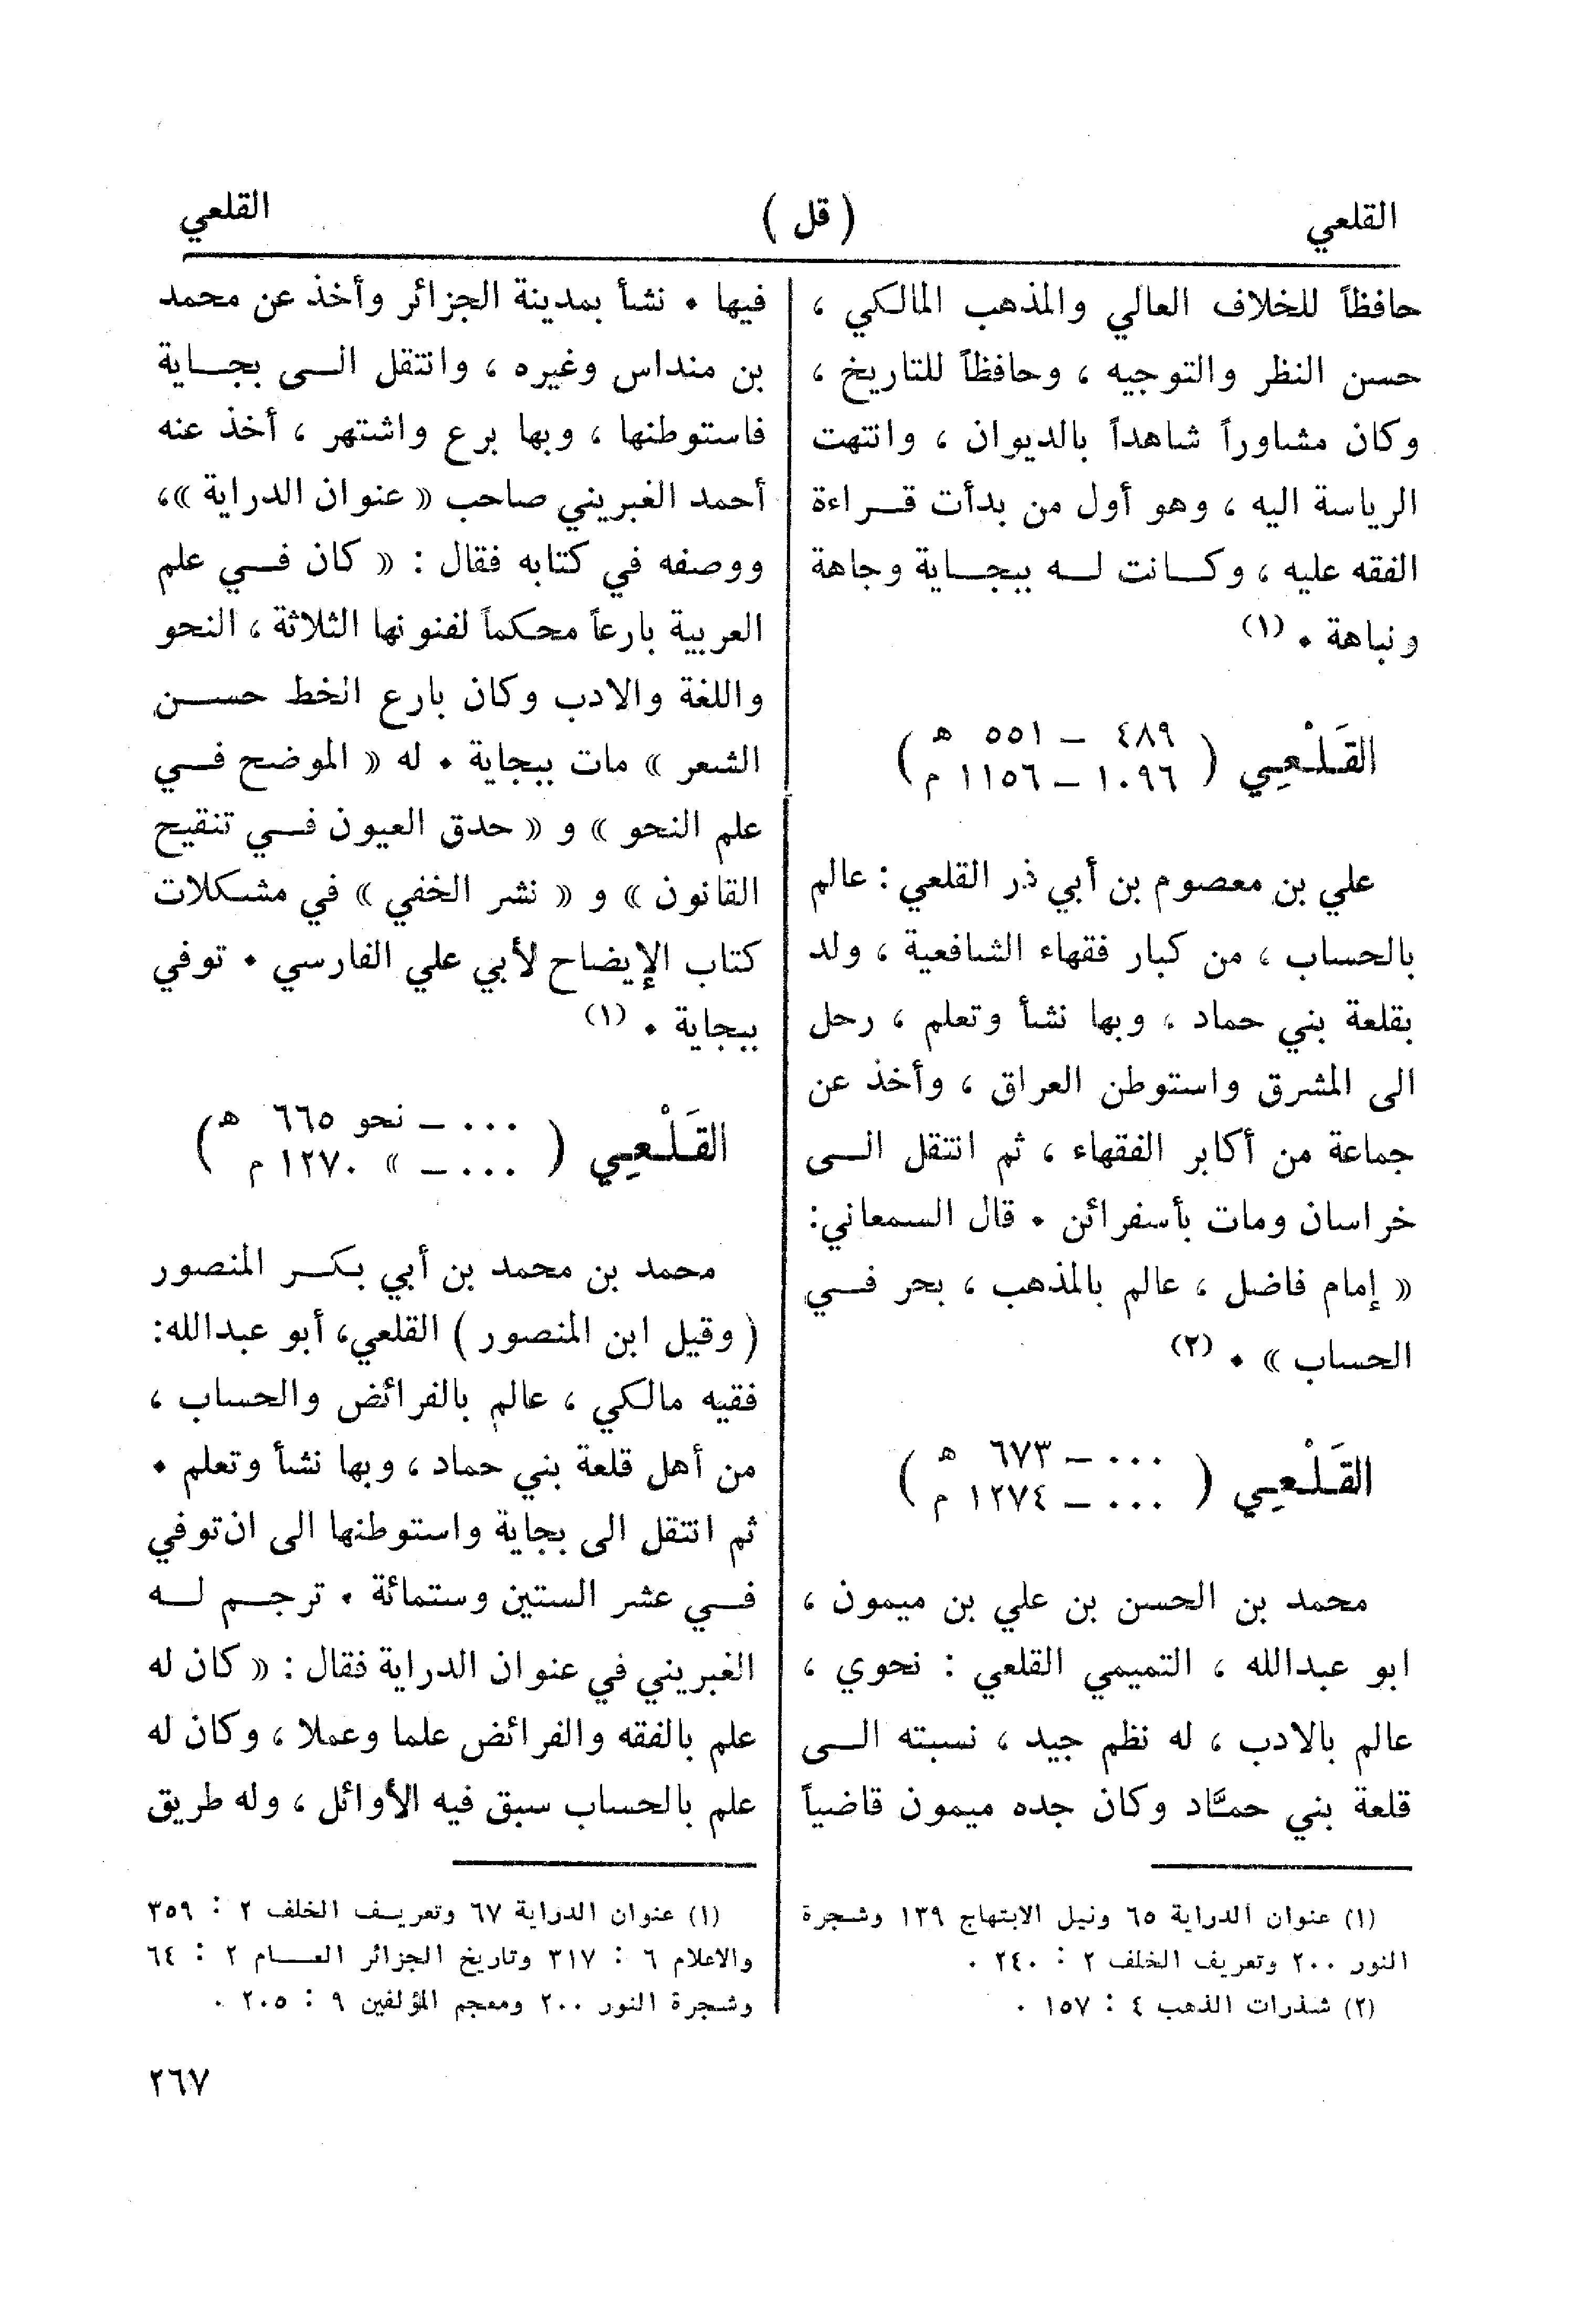 القلعي
( قل )
القلعي
حافظاً للخلاف العالي والمذهب المالكي ،
حسن النظر والتوجيه ، وحافظاً للتاريخ ،
وكان مشاوراً شاهداً بالديوان ، وانتهت
الرياسة اليه ، وهو أول من بدأت قراءة
الفقه عليه ، وكانت له ببجاية وجاهة
ونباهة . (١)
القَلْعِي ( ٤٨٩ – ٥٥١ ه
١٠٩٦ – ١١٥٦ م )
علي بن معصوم بن أبي ذر القلعي : عالم
بالحساب ، من كبار فقهاء الشافعية ، ولد
بقلعة بني حماد ، وبها نشأ وتعلم ، رحل
الى المشرق واستوطن العراق ، وأخذ عن
جماعة من أكابر الفقهاء ، ثم انتقل الى
خراسان ومات بأسفرائن . قال السمعاني:
« إمام فاضل ، عالم بالمذهب ، بحر في
الحساب » . (٢)
القَلْعِي ( ... – ٦٧٣ ه
... – ١٢٧٤ م )
محمد بن الحسن بن علي بن ميمون ،
ابو عبدالله ، التميمي القلعي : نحوي ،
عالم بالادب ، له نظم جيد ، نسبته الى
قلعة بني حمَّاد وكان جده ميمون قاضياً
(١) عنوان الدراية ٦٥ ونيل الابتهاج ١٣٩ وشجرة
النور ٢٠٠ وتعريف الخلف ٢ : ٢٤٠ .
(٢) شذرات الذهب ٤ : ١٥٧ .
فيها . نشأ بمدينة الجزائر وأخذ عن محمد
بن منداس وغيره ، وانتقل الى بجاية
فاستوطنها ، وبها برع واشتهر ، أخذ عنه
أحمد الغبريني صاحب « عنوان الدراية »،
ووصفه في كتابه فقال : « كان في علم
العربية بارعاً محكماً لفنونها الثلاثة ، النحو
واللغة والادب وكان بارع الخط حسن
الشعر » مات ببجاية . له « الموضح في
علم النحو » و « حدق العيون في تنقيح
القانون » و « نشر الخفي » في مشكلات
كتاب الإيضاح لأبي علي الفارسي . توفي
ببجاية . (١)
القَلْعِي ( ... – نحو ٦٦٥ ه
... – » ١٢٧٠ م )
محمد بن محمد بن أبي بكر المنصور
( وقيل ابن المنصور ) القلعي، أبو عبدالله:
فقيه مالكي ، عالم بالفرائض والحساب ،
من أهل قلعة بني حماد ، وبها نشأ وتعلم .
ثم انتقل الى بجاية واستوطنها الى ان توفي
في عشر الستين وستمائة . ترجم له
الغبريني في عنوان الدراية فقال : « كان له
علم بالفقه والفرائض علما وعملا ، وكان له
علم بالحساب سبق فيه الأوائل ، وله طريق
(١) عنوان الدراية ٦٧ وتعريف الخلف ٢ : ٣٥٩
والاعلام ٦ : ٣١٧ وتاريخ الجزائر العام ٢ : ٦٤
وشجرة النور ٢٠٠ ومعجم المؤلفين ٩ : ٢٠٥ .
٢٦٧